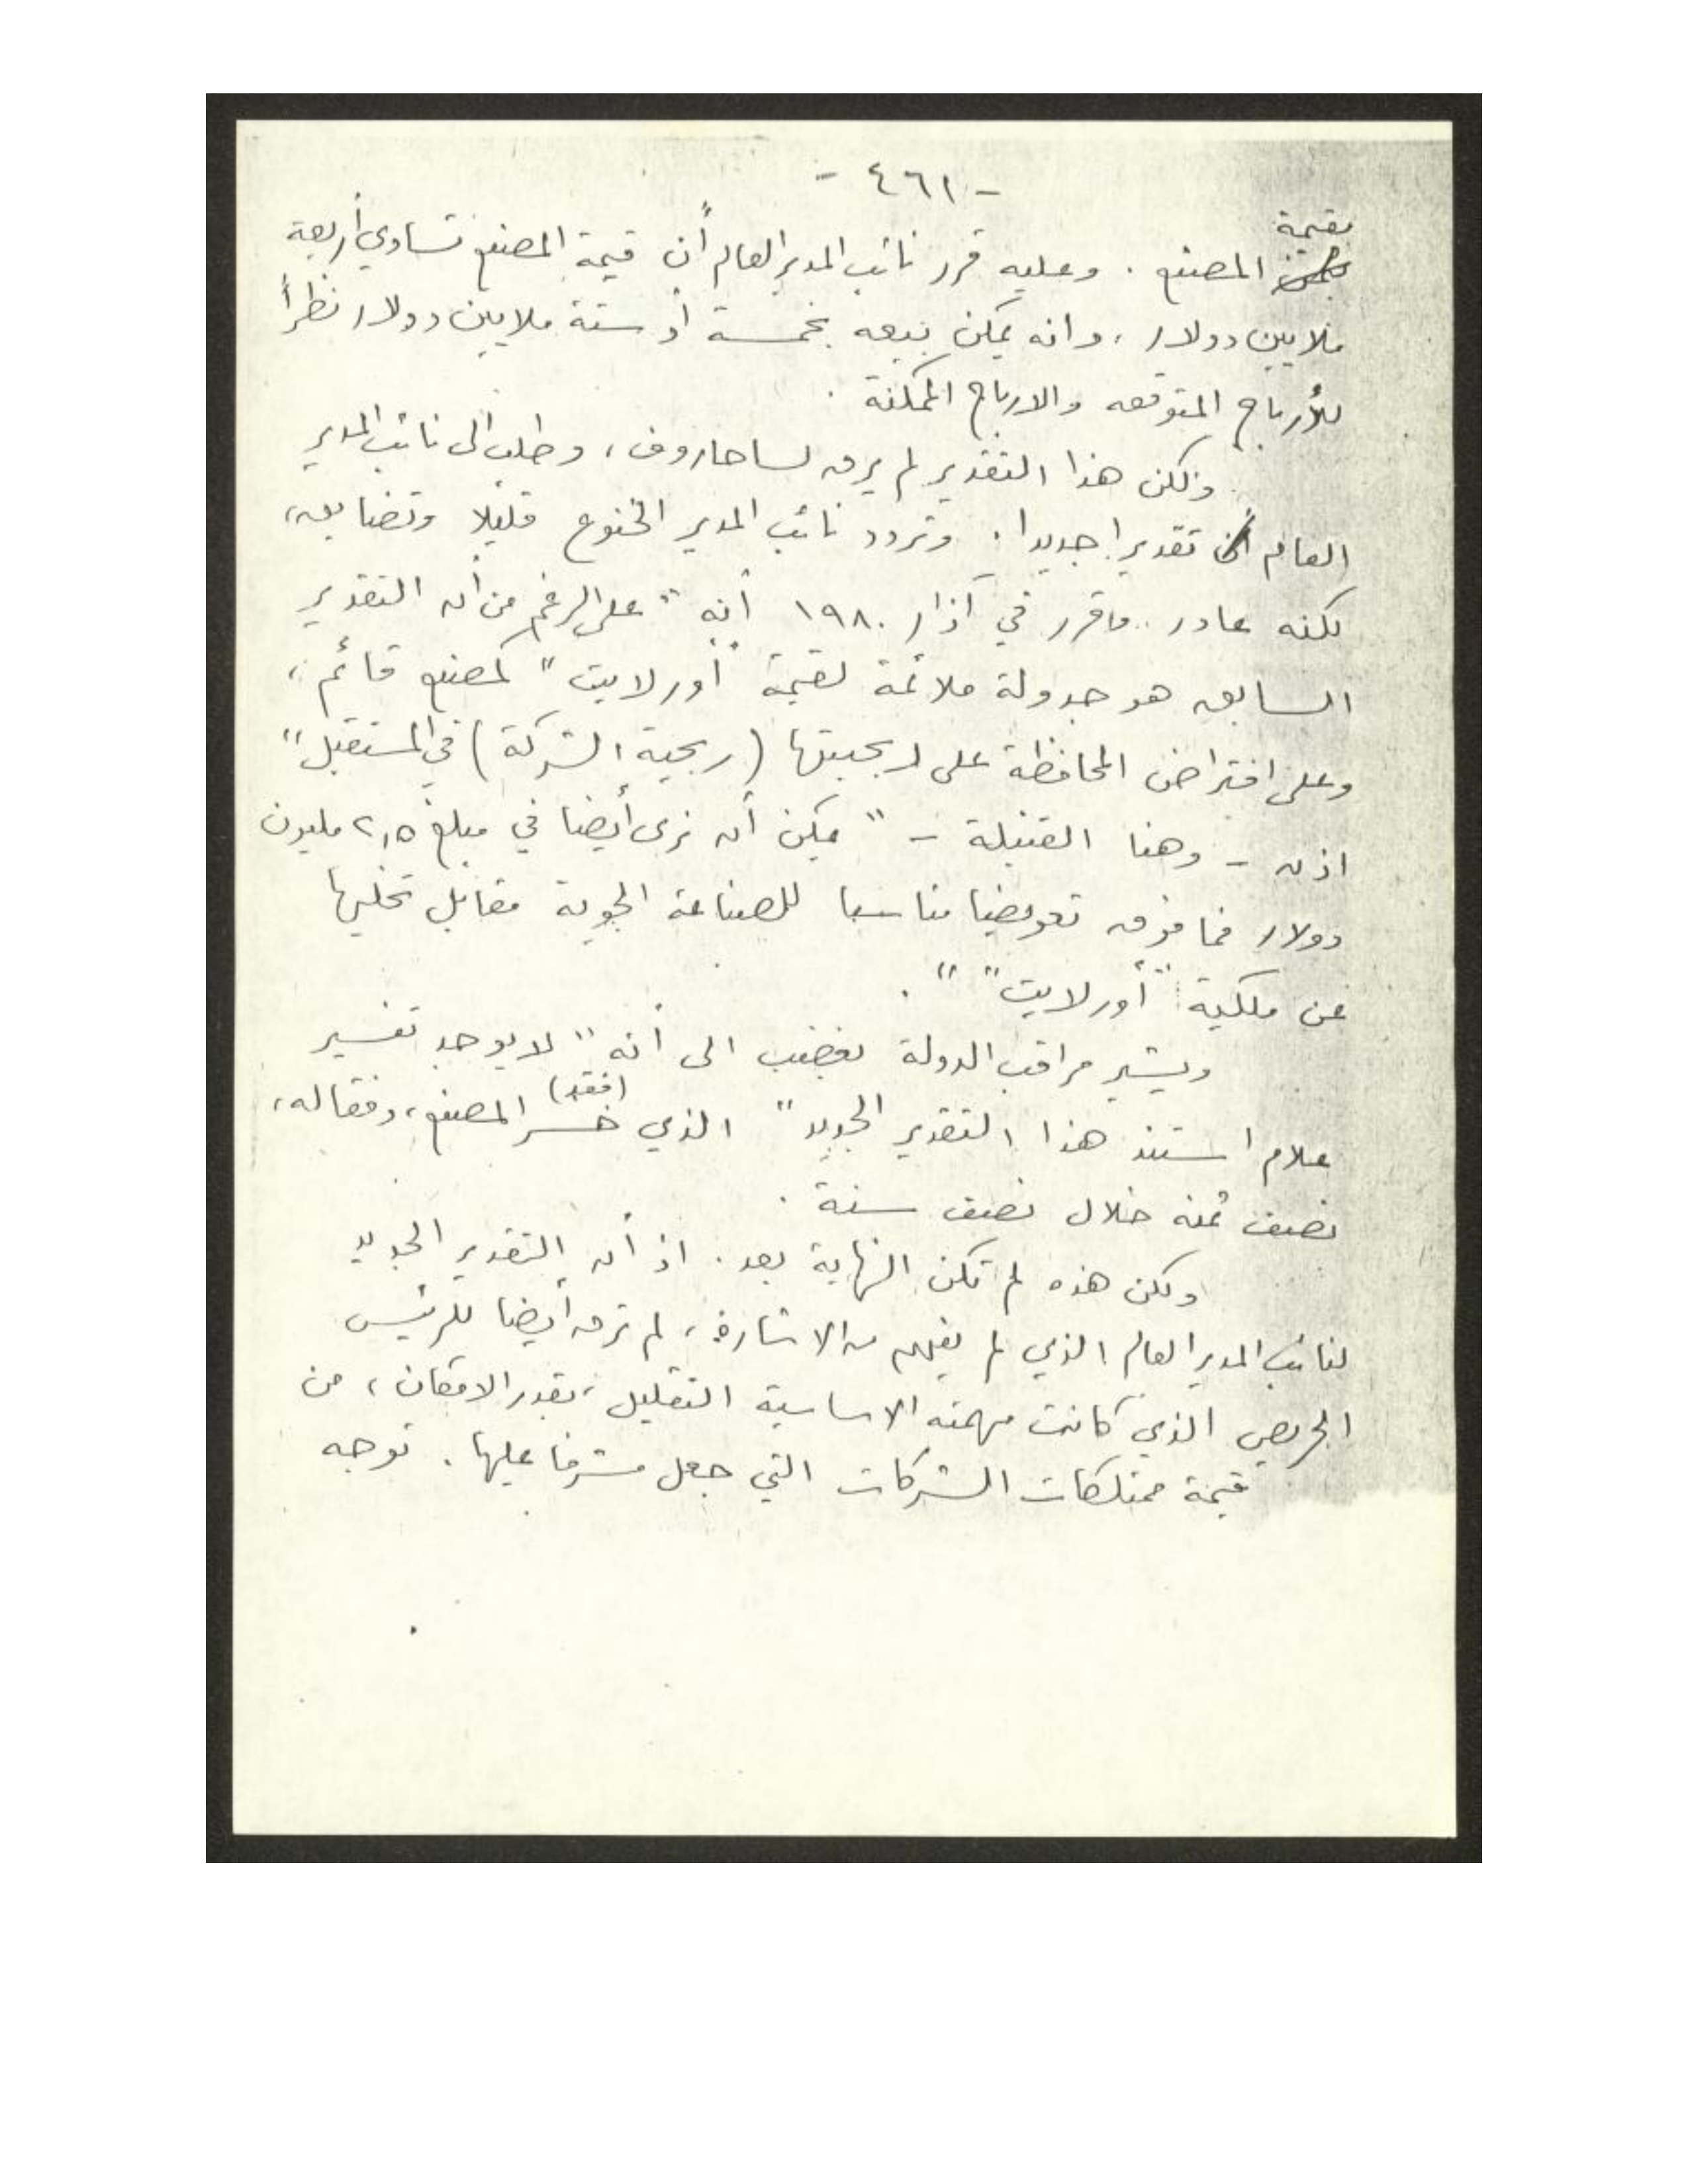 - ٤٦١ -
بقيمة
المصنع . وعليه قرر نائب المدير العام أن قيمة المصنع تساوي أربعة
ملايين دولار ، وانه يمكن بيعه بخمسة أو ستة ملايين دولار نظراً
للأرباح المتوقعه والارباح الممكنة .
ولكن هذا التقدير لم يرق لساحاروف ، وطلب الى نائب المدير
العام تقديرا جديدا . وتردد نائب المدير الخنوع قليلا وتضايق ،
لكنه عاد و قرر في آذار ١٩٨٠ أنه " على الرغم من أن التقدير
السابق هو جدولة ملائمة لقيمة "أورلايت" كمصنع قائم ،
وعلى افتراض المحافظة على ربحيتها (ربحية الشركة) في المستقبل "
اذن - وهنا القنبلة - " يمكن أن نرى أيضا في مبلغ ٢,٥ مليون
دولار فما فوق تعويضا مناسبا للصناعة الجوية مقابل تخليها
عن ملكية "أورلايت" " .
ويشير مراقب الدولة بغضب الى أنه " لا يوجد تفسير
علام استند هذا التقدير الجديد " الذي خسر (فقد) المصنع ، وفقا له ،
نصف ثمنه خلال نصف سنة .
ولكن هذه لم تكن النهاية بعد . اذ أن التقدير الجديد
لنائب المدير العام الذي لم يفهم الاشارة ، لم ترق أيضا للرئيس
الحريص الذي كانت مهمته الاساسية التقليل ، بقدر الامكان ، من
قيمة ممتلكات الشركات التي جعل مشرفا عليها . توجه